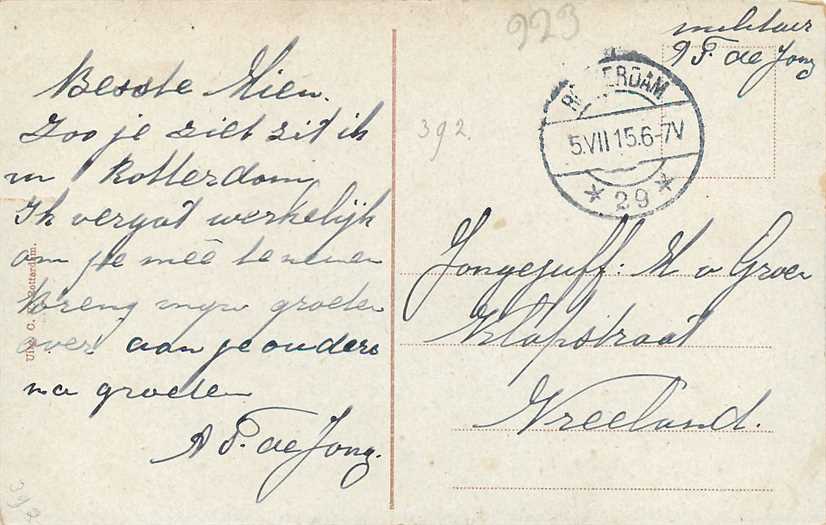 Besste Mien.
Zoo je ziet zit ik
in Rotterdam
Ik vergat werkelijk
om je mêê te nemen
Breng mijn groeten
over aan je ouders
na groeten
A P. de Jong.
Uitg. C. Rotterdam.
392
223
392.
militair
A P. de Jong
ROTTERDAM
5.VII 15.6-7V
* 29 *
Jongejuff: M v Groen
Klapstraat
Vreeland.